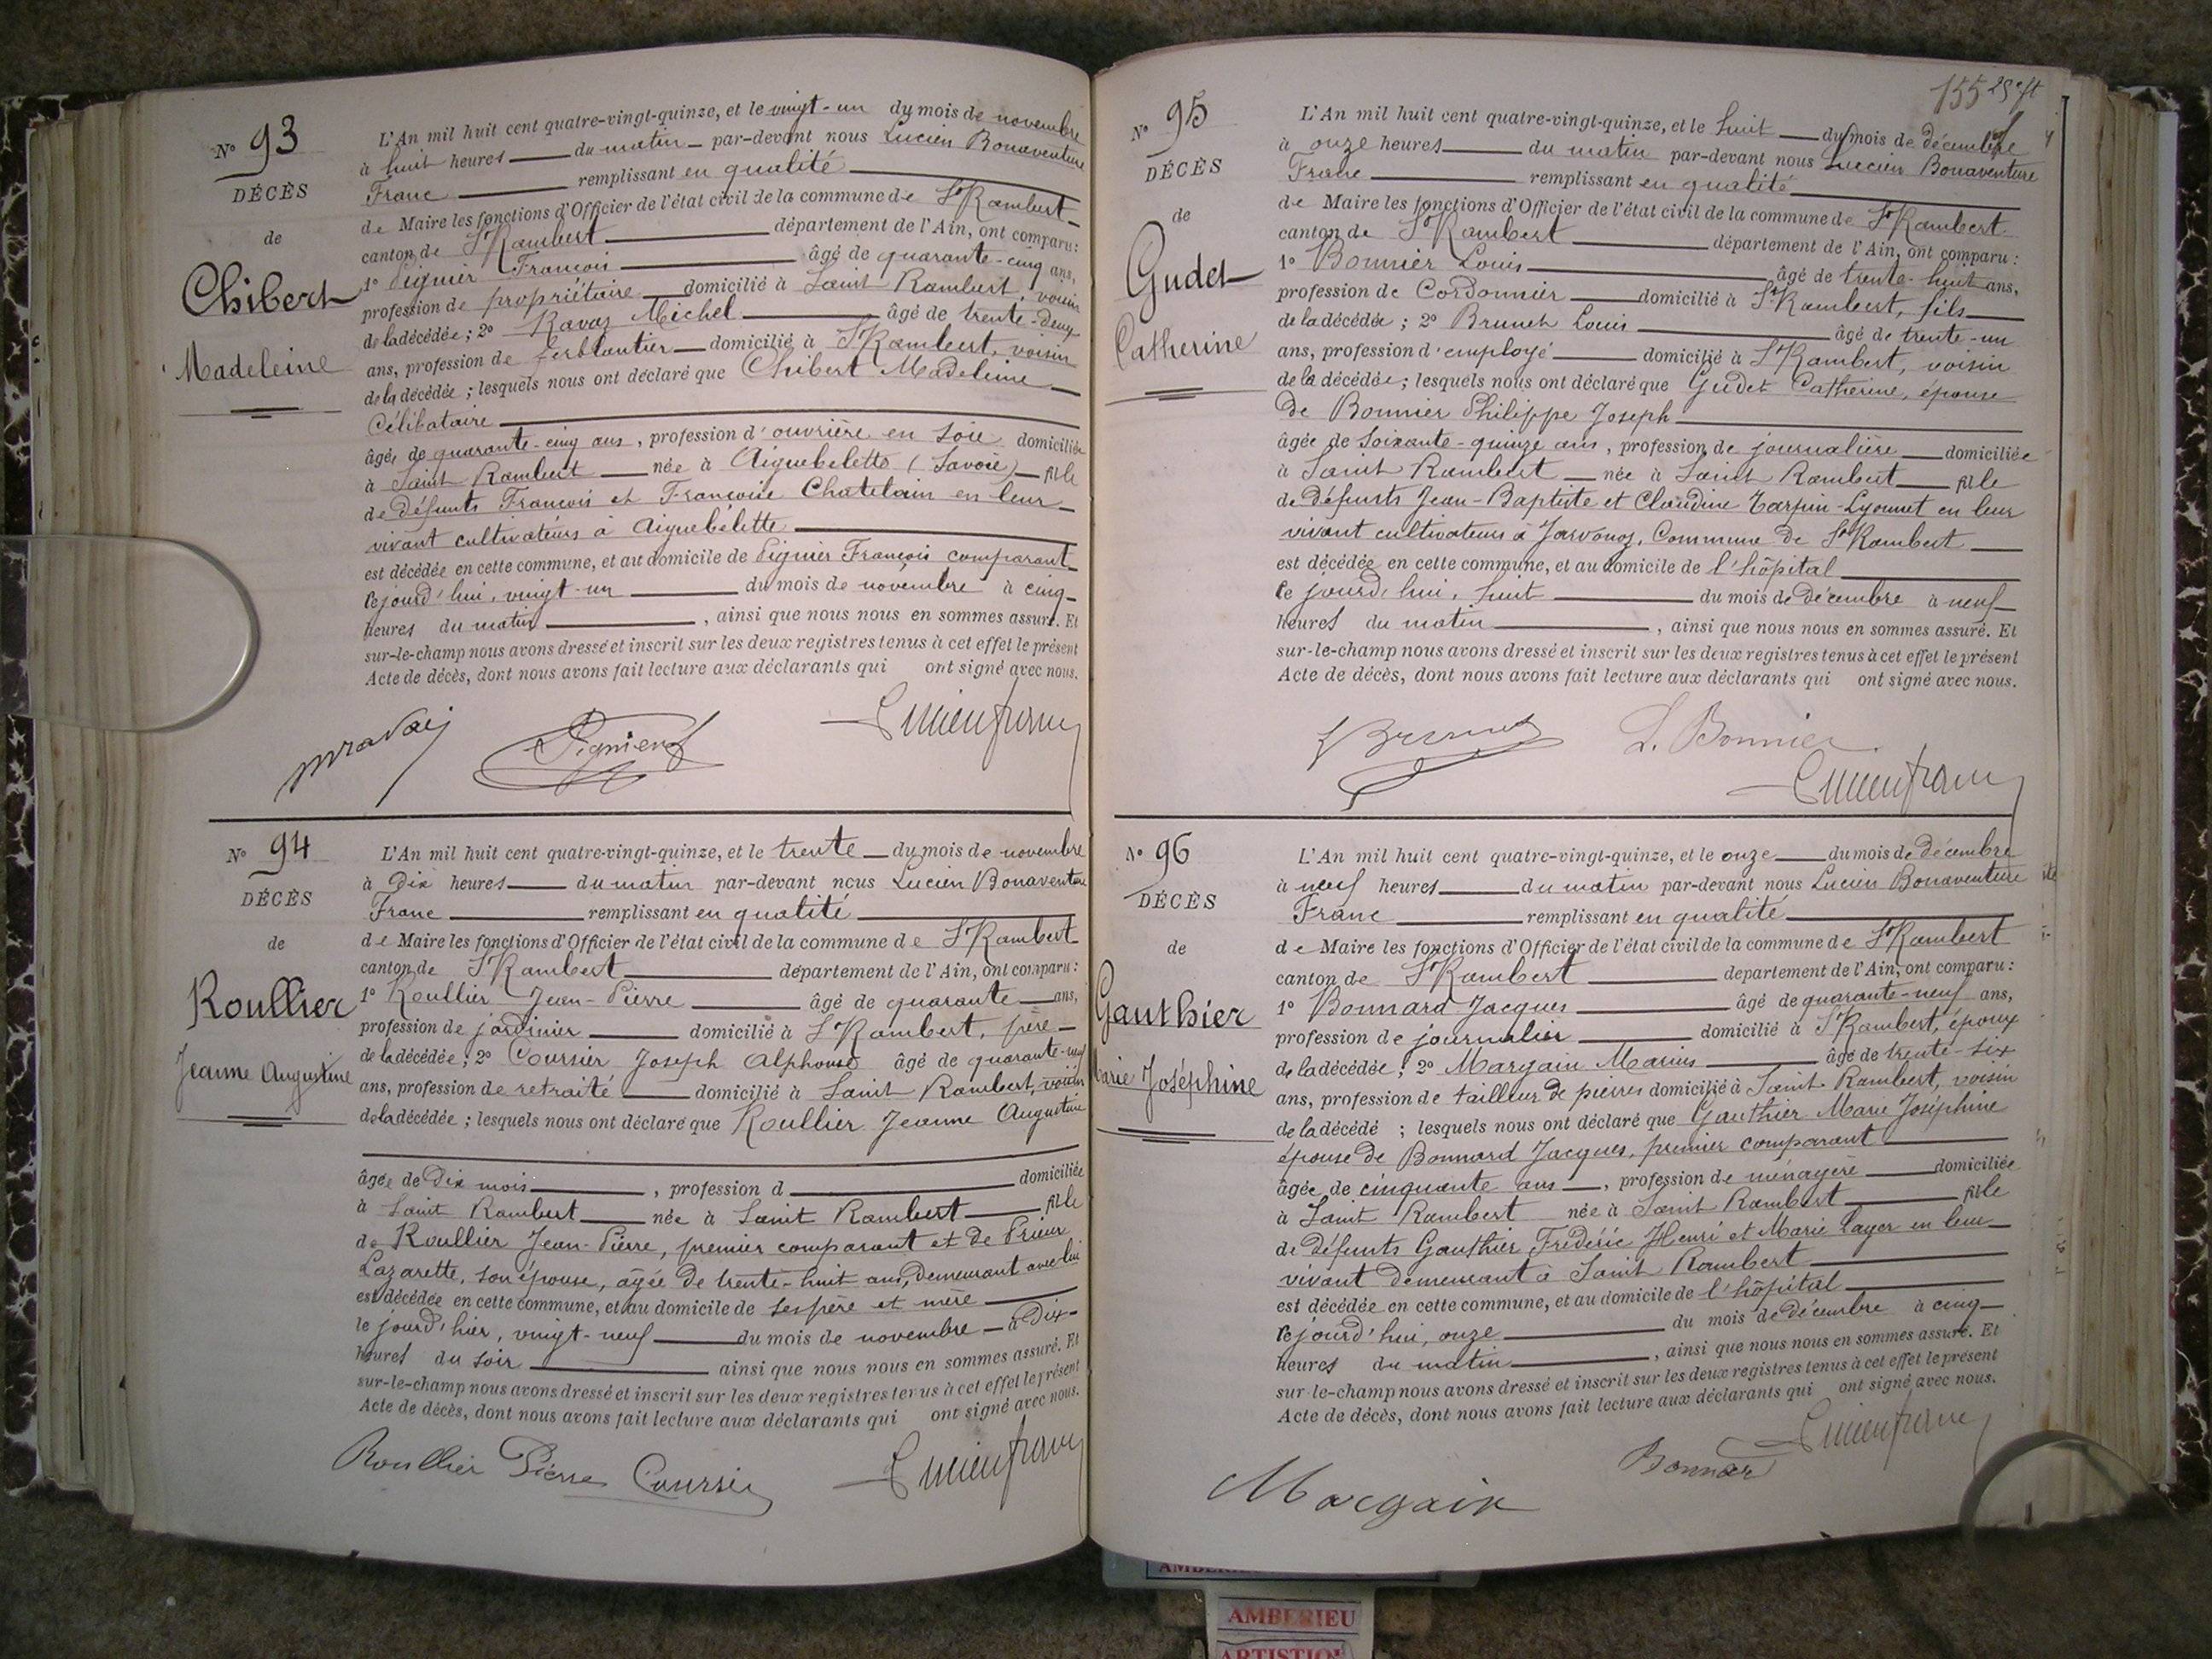 N° 93
DÉCÈS
de
Chibert
Madeleine
L'An mil huit cent quatre-vingt-quinze, et le vingt-un du mois de novembre
à huit heures du matin par-devant nous Lucien Bonaventure
Franc remplissant en qualité
de Maire les fonctions d'Officier de l'état civil de la commune de St Rambert
canton de St Rambert département de l'Ain, ont comparu :
1° Pignier François âgé de quarante-cinq ans,
profession de propriétaire domicilié à Saint Rambert, voisin
de la décédée ; 2° Ravaz Michel âgé de trente-deux
ans, profession de ferblantier domicilié à St Rambert, voisin
de la décédée ; lesquels nous ont déclaré que Chibert Madeleine
Célibataire
âgée de quarante-cinq ans, profession d'ouvrière en soie domiciliée
à Saint Rambert née à Aiguebelette (Savoie) fille
de défunts François et Françoise Chatelain en leur
vivant cultivateurs à Aiguebélette
est décédée en cette commune, et au domicile de Pignier François comparant
le jourd'hui, vingt-un du mois de novembre à cinq
heures du matin, ainsi que nous nous en sommes assuré. Et
sur-le-champ nous avons dressé et inscrit sur les deux registres tenus à cet effet le présent
Acte de décès, dont nous avons fait lecture aux déclarants qui ont signé avec nous.
mravaz Pignier Lucien franc
N° 94
DÉCÈS
de
Roullier
Jeanne Augustine
L'An mil huit cent quatre-vingt-quinze, et le trente du mois de novembre
à dix heures du matin par-devant nous Lucien Bonaventure
Franc remplissant en qualité
de Maire les fonctions d'Officier de l'état civil de la commune de St Rambert
canton de St Rambert département de l'Ain, ont comparu :
1° Roullier Jean-Pierre âgé de quarante ans,
profession de jardinier domicilié à St Rambert, père
de la décédée ; 2° Coursier Joseph Alphonse âgé de quarante-neuf
ans, profession de retraité domicilié à Saint Rambert, voisin
de la décédée ; lesquels nous ont déclaré que Roullier Jeanne Augustine
âgée de dix mois, profession d domiciliée
à Saint Rambert née à Saint Rambert fille
de Roullier Jean-Pierre, premier comparant et de Prieur
Lazarette, son épouse, âgée de trente-huit ans, demeurant avec lui
est décédée en cette commune, et au domicile de ses père et mère
le jourd'hier, vingt-neuf du mois de novembre à dix
heures du soir ainsi que nous nous en sommes assuré. Et
sur-le-champ nous avons dressé et inscrit sur les deux registres tenus à cet effet le présent
Acte de décès, dont nous avons fait lecture aux déclarants qui ont signé avec nous.
Roullier Pierre Coursier Lucien franc
155
N° 95
DÉCÈS
de
Gudet
Catherine
L'An mil huit cent quatre-vingt-quinze, et le huit du mois de décembre
à onze heures du matin par-devant nous Lucien Bonaventure
Franc remplissant en qualité
de Maire les fonctions d'Officier de l'état civil de la commune de St Rambert
canton de St Rambert département de l'Ain, ont comparu :
1° Bonnier Louis âgé de trente-huit ans,
profession de Cordonnier domicilié à St Rambert, fils
de la décédée ; 2° Brunet Louis âgé de trente-un
ans, profession d'employé domicilié à St Rambert, voisin
de la décédée ; lesquels nous ont déclaré que Gudet Catherine, épouse
de Bonnier Philippe Joseph
âgée de soixante-quinze ans, profession de journalière domiciliée
à Saint Rambert née à Saint Rambert fille
de défunts Jean-Baptiste et Claudine Tarpin-Lyonnet en leur
vivant cultivateurs à Javornoz, Commune de St Rambert
est décédée en cette commune, et au domicile de l'hôpital
le jourd'hui, huit du mois de décembre à neuf
heures du matin, ainsi que nous nous en sommes assuré. Et
sur-le-champ nous avons dressé et inscrit sur les deux registres tenus à cet effet le présent
Acte de décès, dont nous avons fait lecture aux déclarants qui ont signé avec nous.
L. Bonnier
Lucien franc
N° 96
DÉCÈS
de
Gauthier
Marie Joséphine
L'An mil huit cent quatre-vingt-quinze, et le onze du mois de décembre
à neuf heures du matin par-devant nous Lucien Bonaventure
Franc remplissant en qualité
de Maire les fonctions d'Officier de l'état civil de la commune de St Rambert
canton de St Rambert departement de l'Ain, ont comparu :
1° Bonnard Jacques âgé de quarante-neuf ans,
profession de journalier domicilié à St Rambert, époux
de la décédée ; 2° Margain Marius âgé de trente-six
ans, profession de tailleur de pierres domicilié à Saint Rambert, voisin
de la décédé ; lesquels nous ont déclaré que Gauthier Marie Joséphine
épouse de Bonnard Jacques, premier comparant
âgée de cinquante ans, profession de ménagère domiciliée
à Saint Rambert née à Saint Rambert fille
de défunts Gauthier Frédéric Henri et Marie Layer en leur
vivant demeurant à Saint Rambert
est décédée en cette commune, et au domicile de l'hôpital
le jourd'hui, onze du mois de décembre à cinq
heures du matin, ainsi que nous nous en sommes assuré. Et
sur-le-champ nous avons dressé et inscrit sur les deux registres tenus à cet effet le présent
Acte de décès, dont nous avons fait lecture aux déclarants qui ont signé avec nous.
Lucien franc
Margain Bonnard
AMBERIEU
ARTISTIQUE